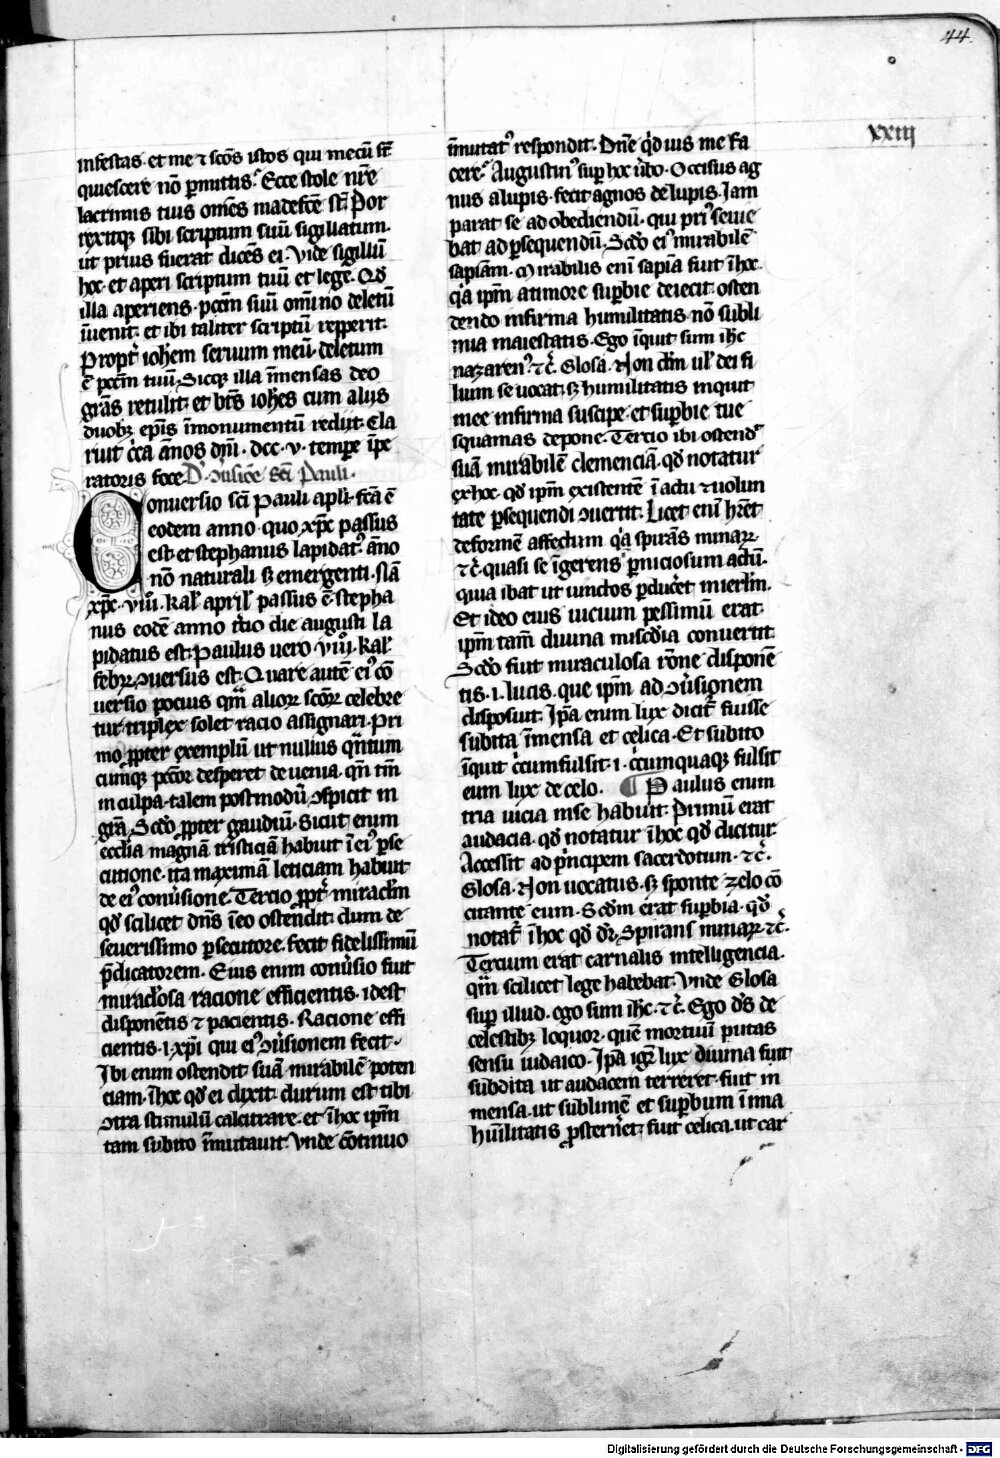 44.
xxiij
infestas. et me ⁊ scōs istos qui mecū st̄
quiescere nō ꝑmittis. Ecce stole nr̄e
lacrimis tuis om̄es madefcē st̄. Por
rexitqꝫ sibi scriptum suū sigillatum.
ut prius fuerat dicēs ei. Vide sigillū
hoc et aperi scriptum tuū et lege. Qd̄
illa aperiens. pccm̄ suū om̄ino deletū
īuenit. et ibi taliter scriptū repperit.
Propt̾ ioh̄em seruum meū. deletum
ē pccm̄ tuū. Sicqꝫ illa īmensas deo
grās retulit. et bt̄s ioh̄es cum alijs
duobꝫ ep̄is ī monumentū redijt. Cla
ruit c̾ca ānos dn̄i. dcc. v. tempe īpe
ratoris foce. D' ꝯu̾sione sci Pauli.
Conuersio sci Pauli apl̄i. fcā ē
eodem anno quo xp̄c passus
est. et stephanus lapidat᾽. āno
nō naturali sꝫ emergenti. Nā
xp̄c. viij. kal' april' passus ē. stepha
nus eodē anno t̾cio die augusti la
pidatus est. Paulus uero viij. kal'
febrꝝ ꝯuersus est. Quare autē ei᾽ cō
uersio pocius qm̄ alioꝝ scōꝝ celebre
tur. triplex solet racio assignari. Pri
mo ꝓpter exemplū ut nullus qn̄tum
cumqꝫ pctōr desperet de uenia. qn̄ tm̄
in culpa talem postmodū ꝯspicit in
grā. Scd̄o ꝓpter gaudiū. Sicut enim
ecclia magnā tristiciā habuit ī ei᾽ pse
cutione. ita maximā leticiam habuit
de ei᾽ conu̾sione. Tercio ꝓpt̾ miraclm̄
qd̄ scilicet dn̄s ī eo ostendit. dum de
seuerissimo ꝑsecutore. fecit fidelissimū
p̄dicatorem. Eius enim conu̾sio fuit
miraclosa racione efficientis. idest
disponētis ⁊ pacientis. Racione effi
cientis. i. xp̄i qui ei᾽ ꝯu̾sionem fecit.
Ibi enim ostendit suā mirabilē poten
ciam. ī hoc qd̄ ei dixit. durum est tibi
ꝯtra stimulū calcitrare. et ī hoc ip̄m
tam subito īmutauit. Vnde cōtinuo
īmutat᾽ respondit. Dn̄e qd̄ uis me fa
cere. Augustin᾽ suꝑ hoc u̾bo. Occisus ag
nus a lupis. fecit agnos de lupis. Iam
parat se ad obediendū. qui pri᾽ seuie
bat ad ꝑsequendū. Scd̄o ei᾽ mirabilē
sapiam. Mirabilis eni sapia fuit ī hoc.
qa ip̄m a timore suꝑbie deiecit. osten
dendo infirma humilitatis nō subli
mia maiestatis. Ego īquit sum ih̄c
nazaren᾽. ⁊c̄. Glosa. Non dm̄ ul' dei fi
lium se uocat. sꝫ humilitatis inquit
mee infirma suscipe. et suꝑbie tue
squamas depone. Tercio ibi ostend᾽
suā mirabilē clemenciā. qd̄ notatur
ex hoc. qd̄ ip̄m existentē ī actu ⁊ uolun
tate ꝑsequendi ꝯuertit. Licet eni h̄ret
deformē affectum qa spirās minaꝝ
⁊c̄. quasi se īgerens ꝑniciosum actū.
quia ibat ut uinctos ꝑduc̾et in ierlm̄.
Et ideo eius uicium pessimū erat
ip̄m tam̄ diuina miscd̄ia conuertit.
Scd̄o fuit miraculosa rōne disponē
tis. i. lucis. que ip̄m ad ꝯu̾sionem
disposuit. Ip̄a enim lux dicit᾽ fuisse
subita īmensa et celica. Et subito
īquit c̾cumfulsit. i. c̾cumquaqꝫ fulsit
eum lux de celo. ¶ Paulus enim
tria uicia in se habuit. Primū erat
audacia. qd̄ notatur ī hoc qd̄ dicitur.
Accessit ad p̄ncipem sacerdotum. ⁊c̄.
Glosa. Non uocatus. sꝫ sponte ꝫelo cō
citante eum. Scdm̄ erat suꝑbia. qd̄
notat᾽ ī hoc qd̄ dr̄. Spirans minaꝝ. ⁊c̄.
Tercium erat carnalis intelligencia.
qm̄ scilicet lege habebat. Vnde Glosa
suꝑ illud. ego sum ih̄c. ⁊c̄. Ego d's de
celestibꝫ loquor. quē mortuū putas
sensu iudaico. Ip̄a igr̄ lux diuina fuit
subdita ut audacem terreret. fuit in
mensa. ut sublimē et suꝑbum ī ima
hūilitatis ꝓstern̾et. fuit celica. ut car
Digitalisierung gefördert durch die Deutsche Forschungsgemeinschaft - DFG